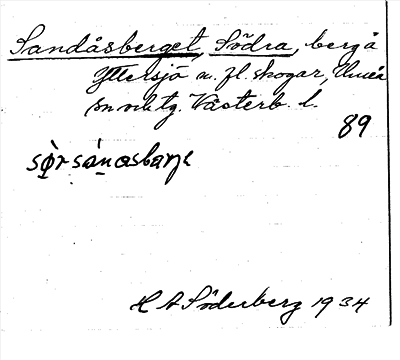 Sandåsberget, Södra, berg å
Yttersjö m. fl. skogar, Umeå
sn o. tg. Västerb. l.
89
H A Söderberg 1934